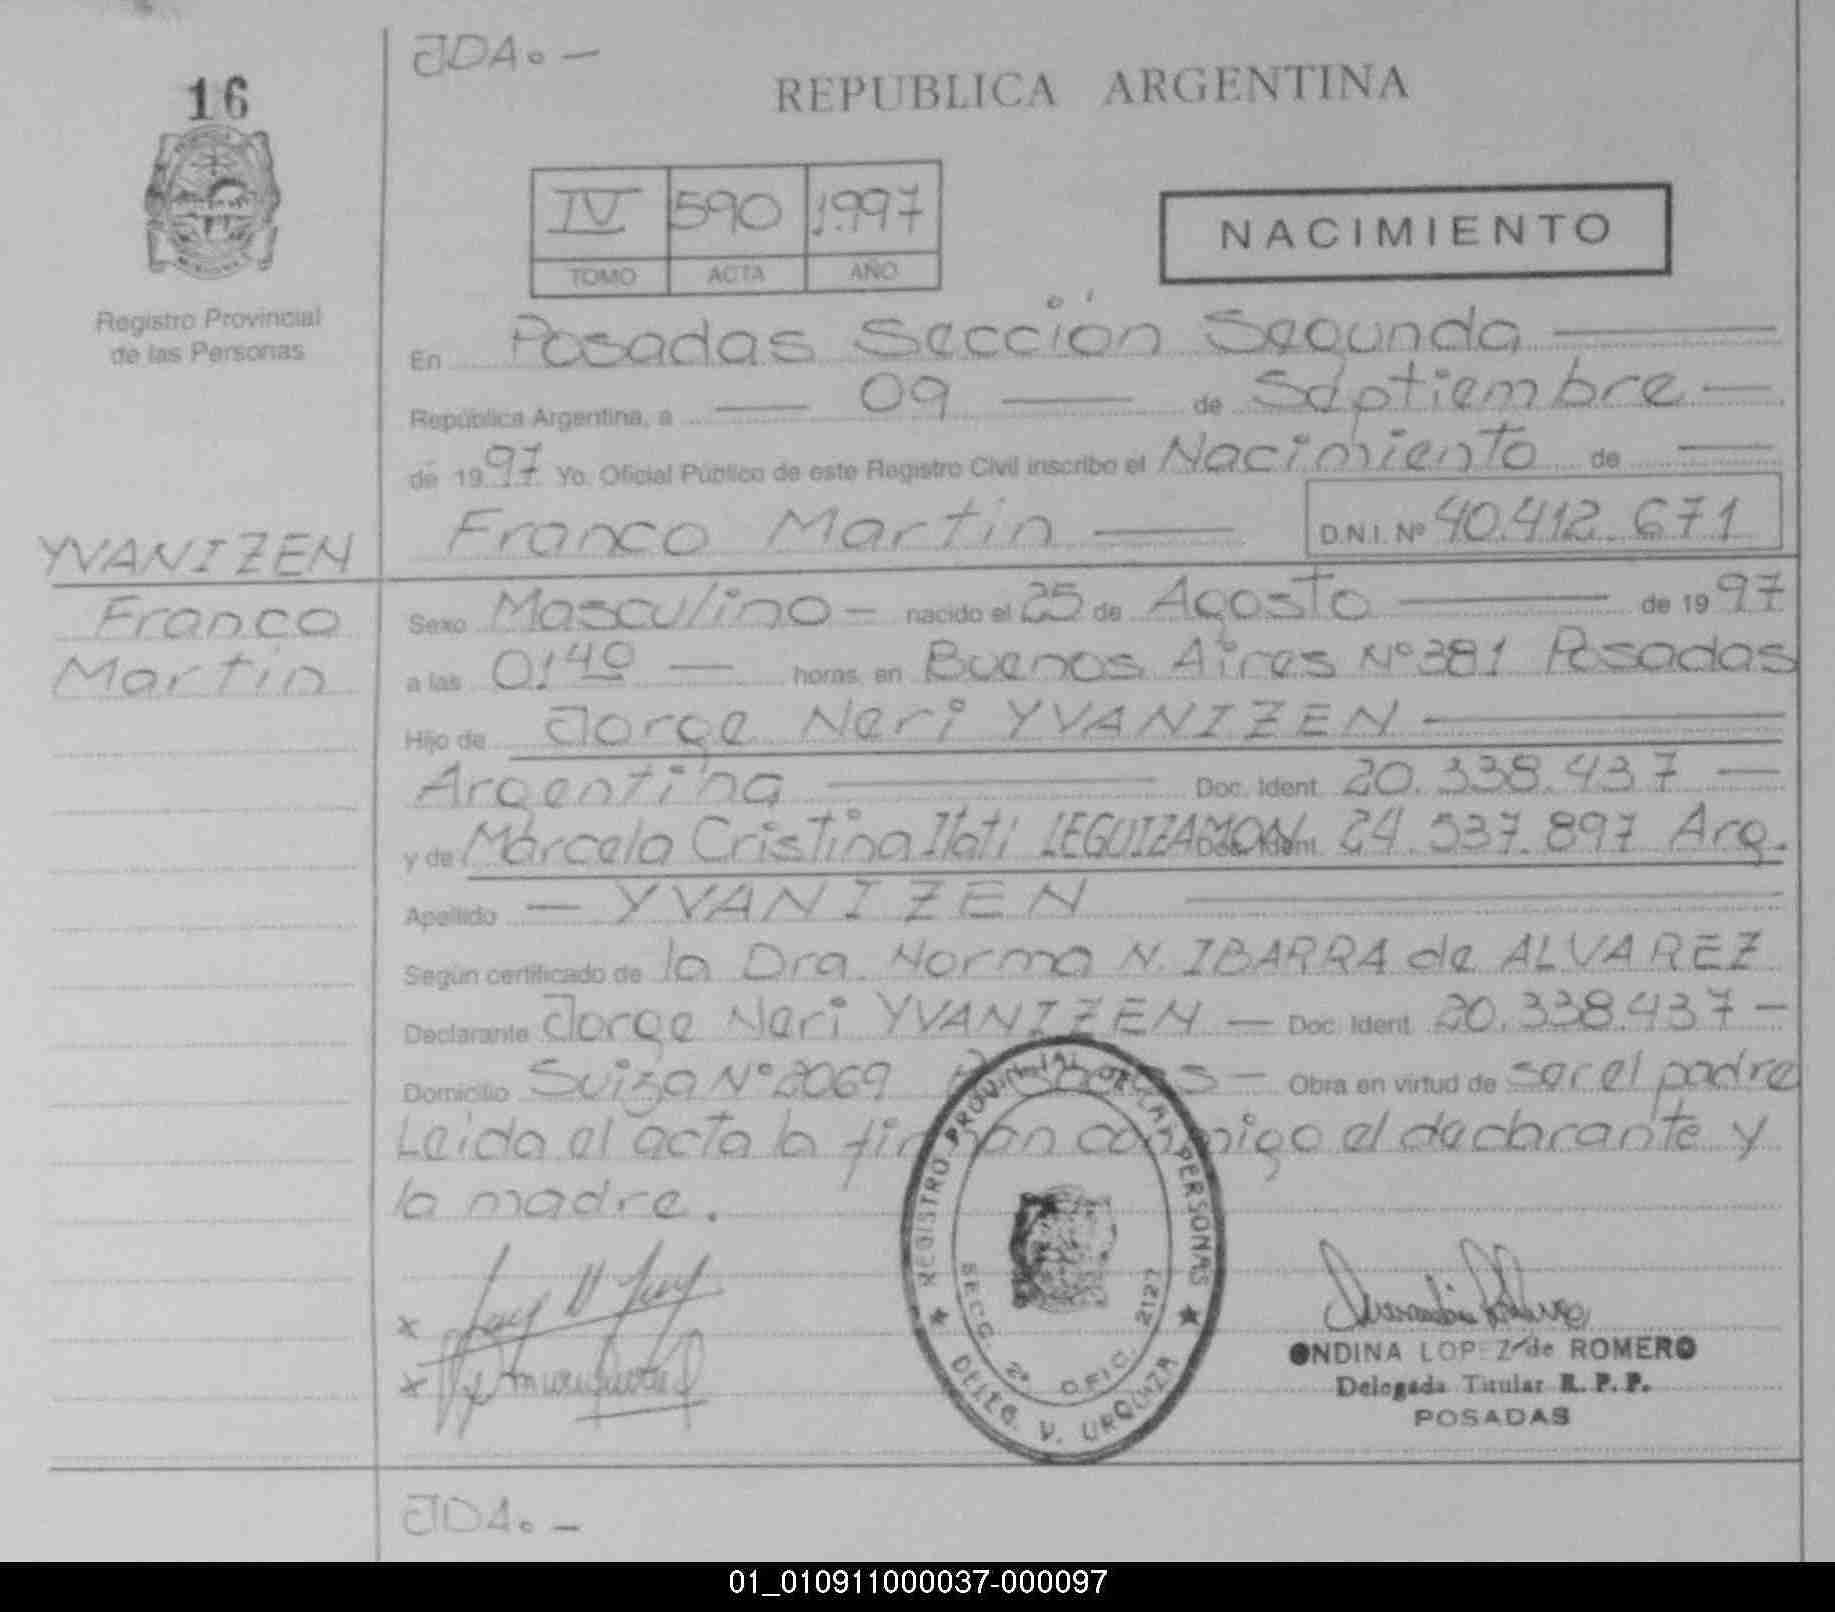 JDA.-
16
REPUBLICA ARGENTINA
IV 590 1.997
TOMO ACTA AÑO
NACIMIENTO
Registro Provincial
de las Personas
En Posadas Sección Segunda
República Argentina, a 09 de Septiembre
de 1997 Yo, Oficial Público de este Registro Civil inscribo el Nacimiento de
Franco Martin D.N.I. Nº 40.412.671
YVANIZEN
Franco
Martin
Sexo Masculino - nacido el 25 de Agosto de 1997
a las 01 40 horas, en Buenos Aires Nº 381 Posadas
Hijo de Jorge Neri YVANIZEN
Argentina Doc. Ident. 20.338.437
y de Marcela Cristina Itati LEGUIZAMON Doc. Ident. 24.537.897 Arg.
Apellido - YVANIZEN
Según certificado de la Dra. Norma N. IBARRA de ALVAREZ
Declarante Jorge Neri YVANIZEN - Doc. Ident. 20.338.437 -
Domicilio Suiza Nº 2069 Posadas - Obra en virtud de ser el padre
Leida el acta la firman conmigo el declarante y
la madre.
REGISTRO PROVINCIAL DE LAS PERSONAS
SECC. 2ª OFIC. 2127
DELEG. V. URQUIZA
x
x
ONDINA LOPEZ de ROMERO
Delegada Titular R. P. P.
POSADAS
JDA.-
01_010911000037-000097